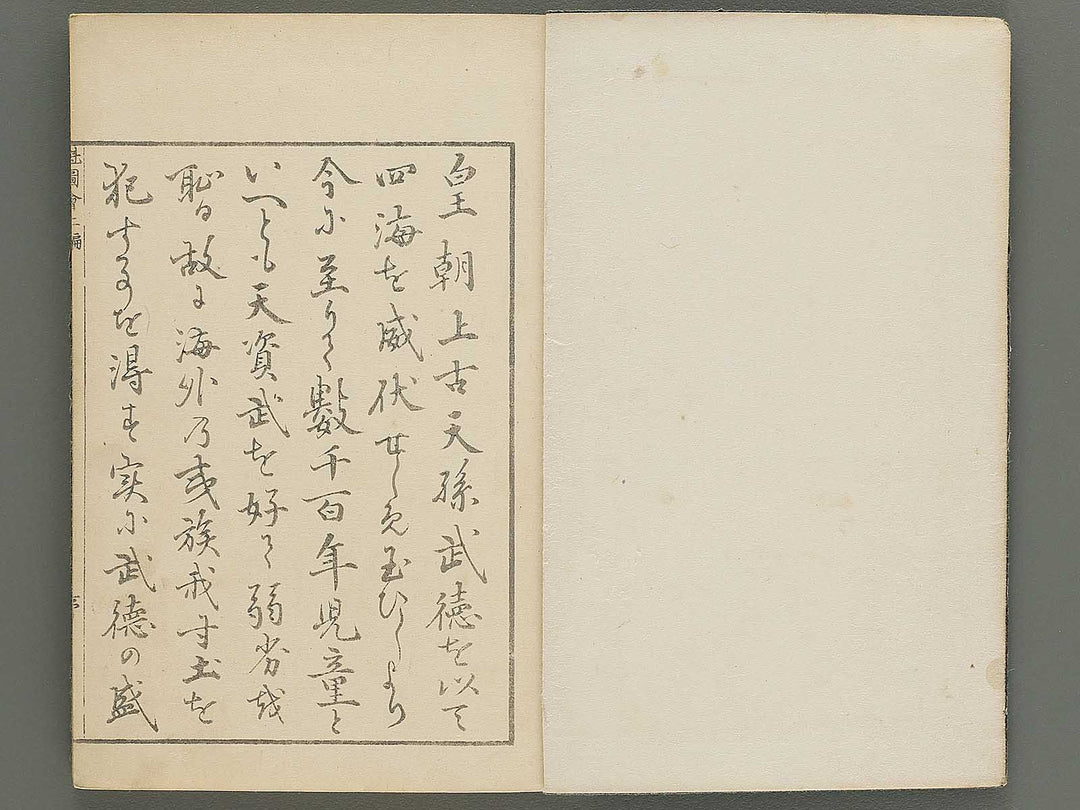 皇朝上古天孫武徳を以て
四海を威伏せしめ玉ひしより
今に至りて數千百年児童と
いへとも天資武を好て弱劣を
恥る故に海外の夷族我寸土を
犯す事を得す実に武徳の盛
圖會二編